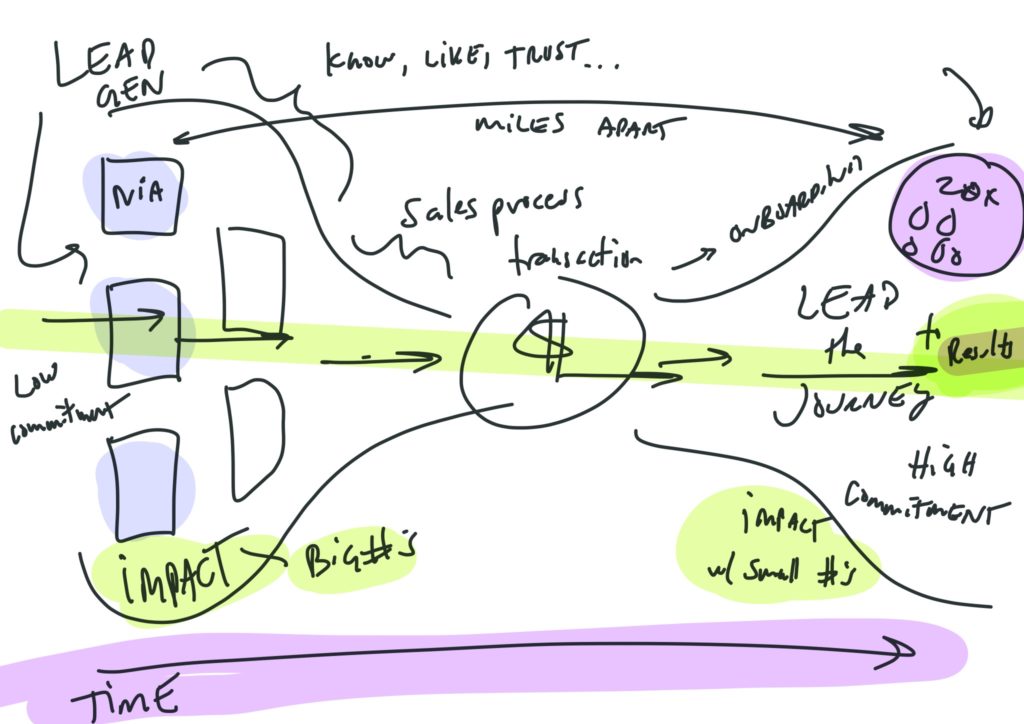 LEAD
GEN
KNOW, LIKE, TRUST...
MILES APART
NIA
Sales process
transaction
ONBOARDING
20K
$
LEAD
the
JOURNEY
+
Results
LOW
commitment
HIGH
COMMITMENT
IMPACT
BIG #'s
IMPACT
w/ Small #'s
TIME